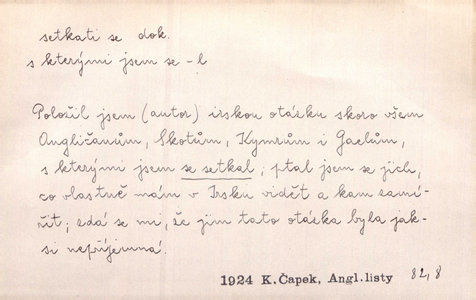 setkati se dok.
s kterými jsem se -l
Položil jsem (autor) irskou otázku skoro všem
Angličanům, Skotům, Kymrům i Gaelům,
s kterými jsem se setkal; ptal jsem se jich,
co vlastně mám v Irsku vidět a kam zamí-
řit; zdá se mi, že jim tato otázka byla jak-
si nepříjemná.
1924 K.Čapek, Angl.listy 82,8